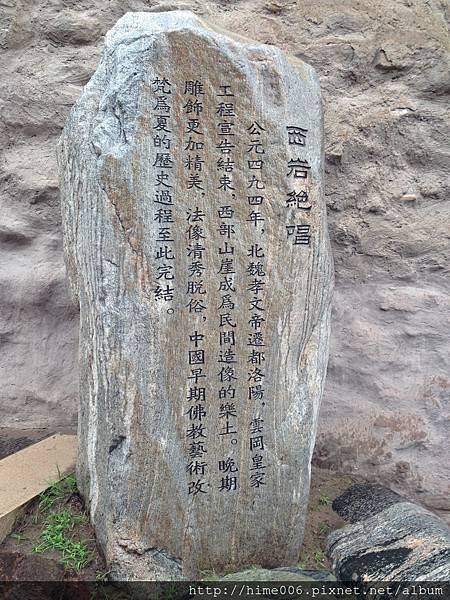 西岩絶唱
公元四九四年，北魏孝文帝遷都洛陽，雲岡皇家
工程宣告結束，西部山崖成爲民間造像的樂土。晚期
雕飾更加精美，法像清秀脱俗，中國早期佛教藝術改
梵爲夏的歷史過程至此完結。
http://hime006.pixnet.net/album